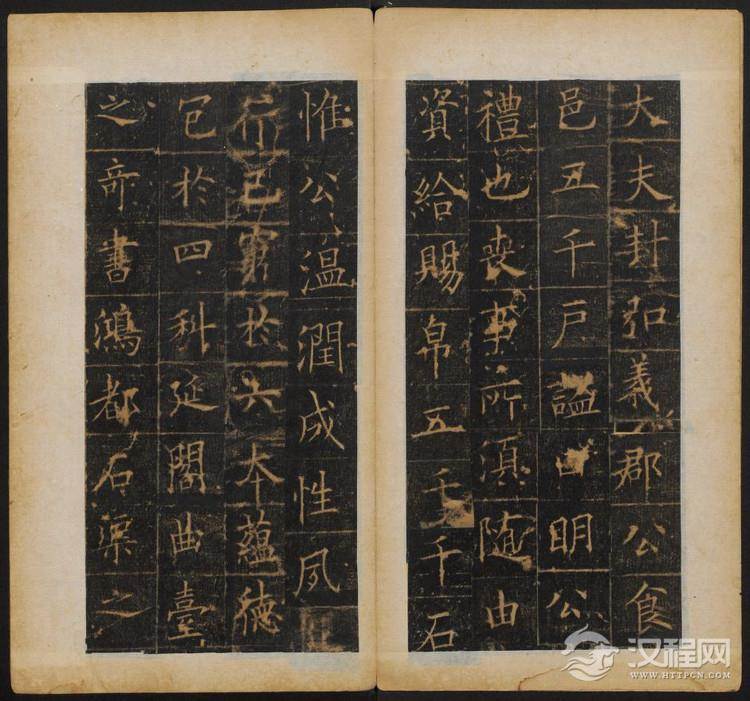 大夫封弘義郡公食
邑五千戶謚曰明公
禮也喪事所湏随由
資給賜帛五千千石
惟公温潤成性夙
行己於六本藴德
包於四科延閣曲臺
之竒書鴻都石渠之
汉程网
WWW.HTTPCN.COM